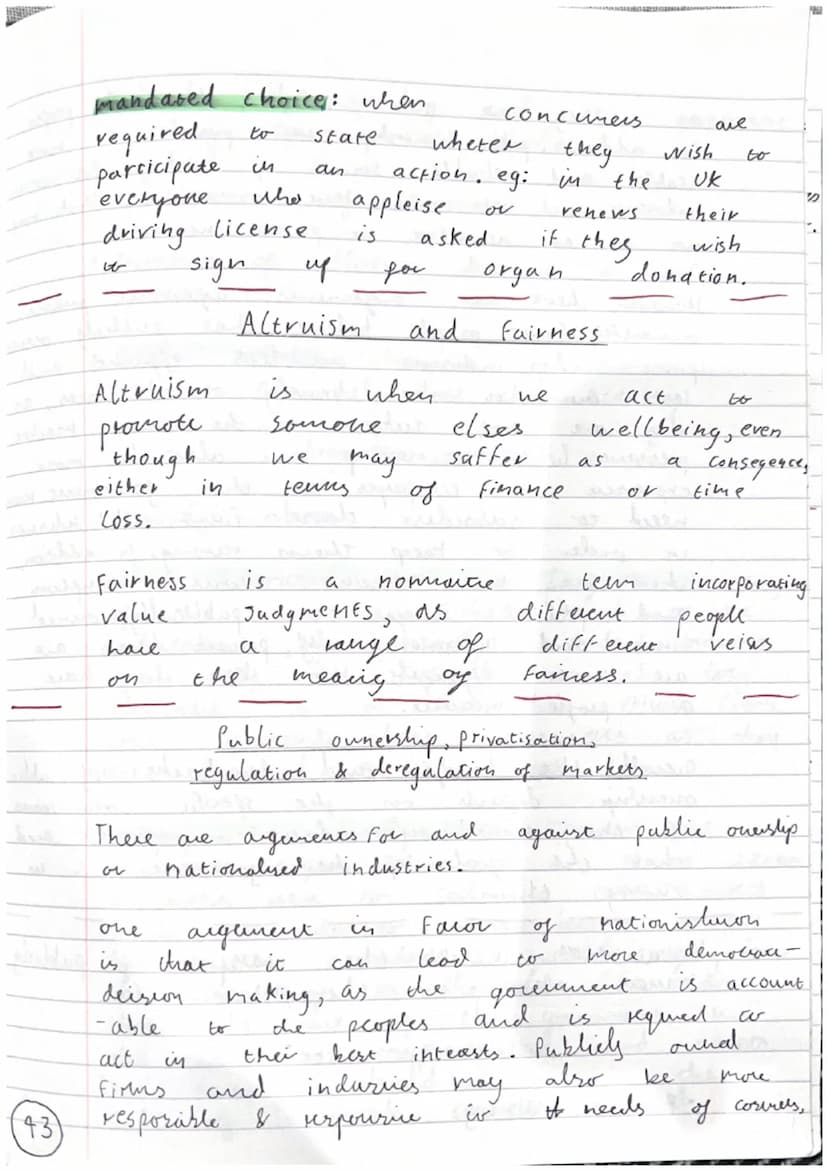 mandated choice: when concumers are
required to state wheter they wish to
participate in an action. eg: in the UK
everyone who appleise or renews their
driving license is asked if they wish
to sign up for organ donation.
Altruism and fairness
Altruism is when we act to
promote somone elses wellbeing, even
though we may saffer as a conseqence,
either in terms of finance or time
loss.
Fairness is a normaitve term incorporating
value Judgments, as different people
have a range of different veiws
on the meanig of fairness.
Public ownership, privatisation,
regulation & deregulation of markets
There are arguments for and against public onership
or nationalised industries.
one argument in favor of
is that it can lead to more democrac-
decision making, as the government is account
-able to the peoples and is required to
act in their best interests. Publicly owned
firms and industries may also be more
resposible & to needs of
43